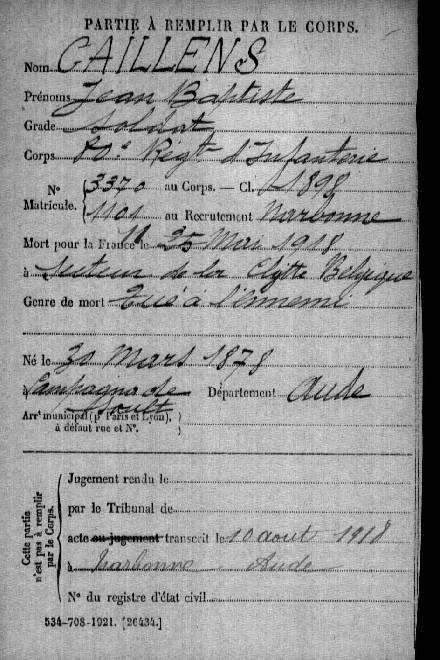 PARTIE À REMPLIR PAR LE CORPS.
Nom CAILLENS
Prénoms Jean Baptiste
Grade Soldat
Corps 80e Régt d'Infanterie
No Matricule. { 3370 au Corps. — Cl. 1898
1101 au Recrutement Narbonne
Mort pour la France le 25 Mai 1918
à Secteur de la Clytte Belgique
Genre de mort Tué à l'ennemi
Né le 30 Mars 1878
à Campagna de Sault Département Aude
Arrt municipal (pr Paris et Lyon), à défaut rue et No.
Cette partie n'est pas à remplir par le Corps.
Jugement rendu le
par le Tribunal de
acte ou jugement transcrit le 10 août 1918
à Narbonne Aude
No du registre d'état civil
534-708-1921. [26434.]